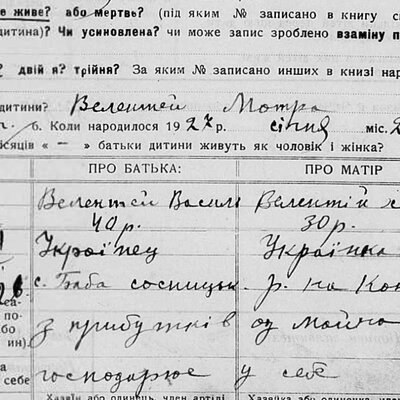 е живе? або мертве? (під яким № записано в книгу
дитина)? Чи усиновлена? чи може запис зроблено взаміну
двій я? трійня? За яким № записано инших в книзі
дитини? Велентей Мотря
6. Коли народилося 1927 р. січня міс. 2
місяців "—" батьки дитини живуть як чоловік і жінка?
ПРО БАТЬКА: ПРО МАТІР
Велентей Васил Велентій
40 р. 30 р.
Українец Українка
с. Баба сосницьк р. на Кон
з прибутків од
господарює у себе
Хазяїн або одинець, член артілі Хазяйка або одиниця